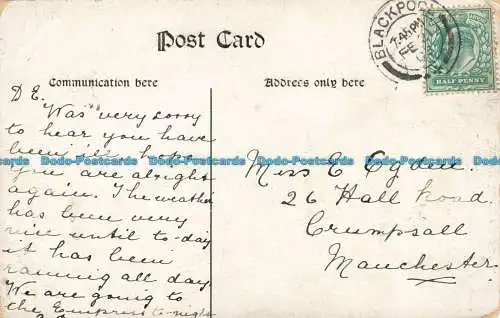 Post Card
BLACKPOOL
7.45 PM
FE
HALF PENNY
Communication here
Address only here
D E.
Was very sorry
to hear you have
been ill hope
you are alright
again. The weather
has been very
nice until to-day
it has been
raining all day.
We are going to
the Empress to-night
Miss E Ogden.
26 Hall Road.
Crumpsall
Manchester.
Dodo-Postcards Dodo-Postcards Dodo-Postcards Dodo-Postcards